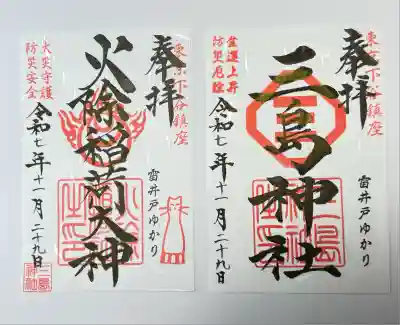 東京下谷鎮座
奉拝
火除稲荷大神
雷井戸ゆかり
火災守護
防災安全
令和七年十一月二十九日
三島神社
東京下谷鎮座
奉拝
三島神社
雷井戸ゆかり
金運上昇
防災厄除
令和七年十一月二十九日